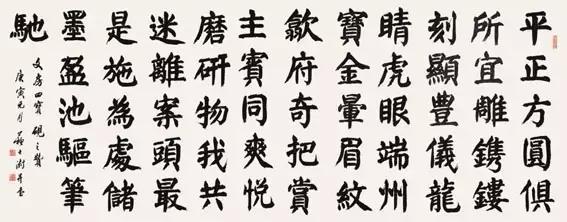 平正方圓俱
所宜雕鎸鏤
刻顯豐儀龍
睛虎眼端州
寶金暈眉紋
歙府奇把賞
主賓同爽悅
磨研物我共
迷離案頭最
是施為處儲
墨盈池驅筆
馳
文房四寶 硯之贊
庚寅元月 蘇士澍并書